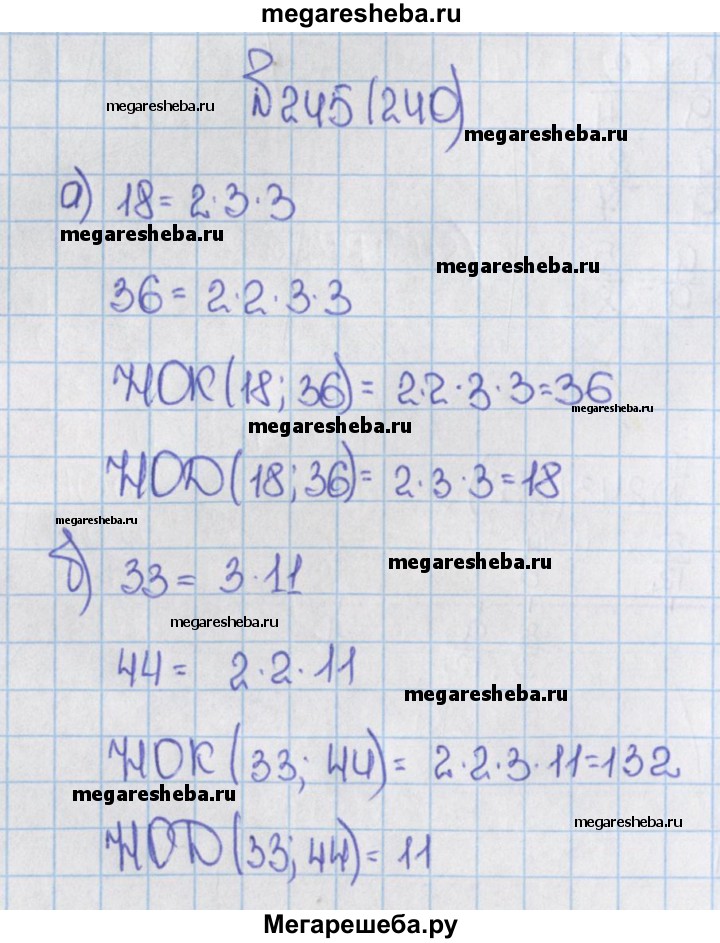 megaresheba.ru
№245(240)
megaresheba.ru
megaresheba.ru
а) 18= 2·3·3
megaresheba.ru
megaresheba.ru
36= 2·2·3·3
НОК(18; 36)= 2·2·3·3=36
megaresheba.ru
megaresheba.ru
НОД(18;36)= 2·3·3=18
megaresheba.ru
megaresheba.ru
б) 33= 3·11
megaresheba.ru
44= 2·2·11
megaresheba.ru
НОК(33; 44)= 2·2·3·11=132
megaresheba.ru
megaresheba.ru
НОД(33;44)=11
Мегарешеба.ру